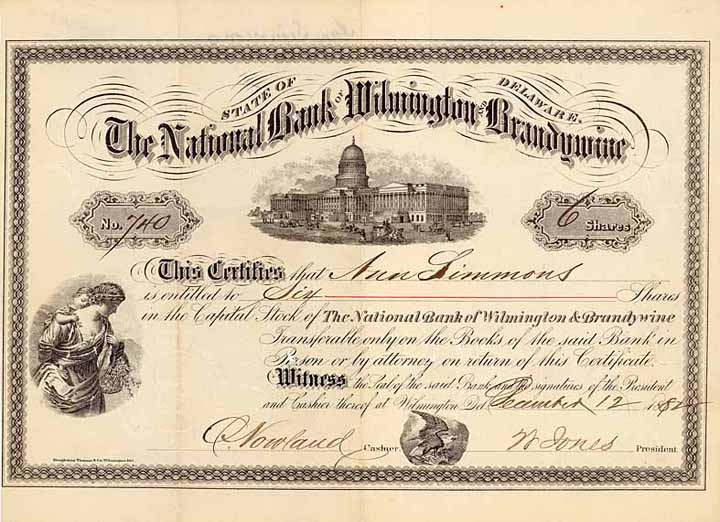 STATE OF DELAWARE.
The National Bank OF Wilmington AND Brandywine
No. 740
6 Shares
This Certifies that Ann Simmons
is entitled to Six Shares
in the Capital Stock of The National Bank of Wilmington & Brandywine
Transferable only on the Books of the said Bank in
Person or by attorney on return of this Certificate.
Witness the Seal of the said Bank and the signatures of the President
and Cashier thereof at Wilmington Del. December 12 1882
C. Nowland Cashier.
W Jones President